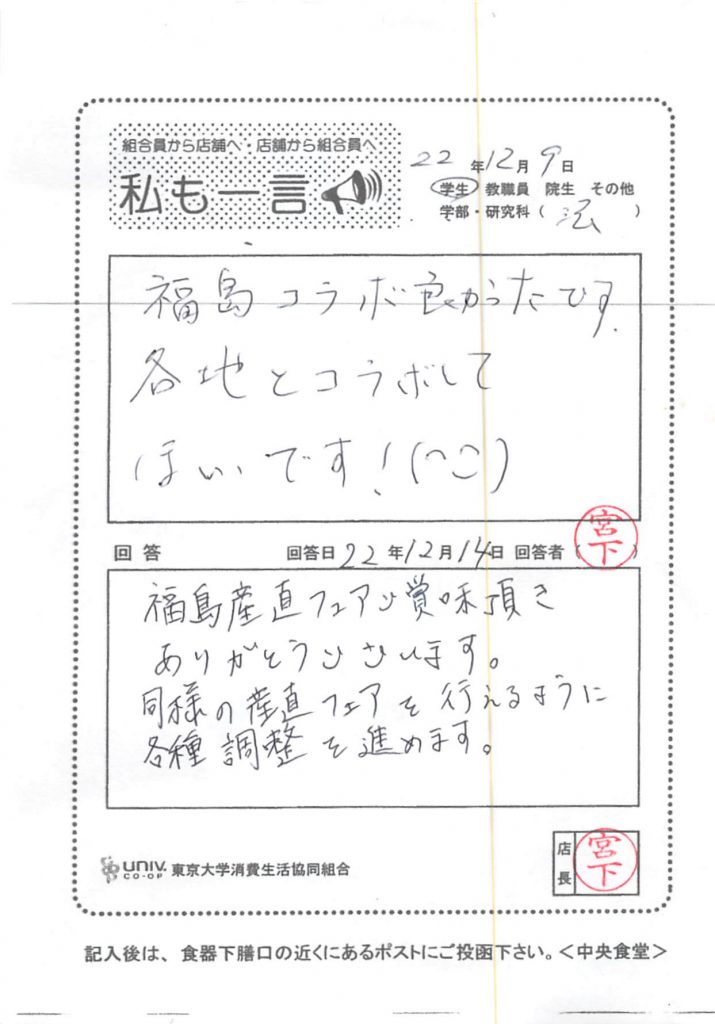 組合員から店舗へ・店舗から組合員へ
私も一言
22年12月9日
学生 教職員 院生 その他
学部・研究科（法）
福島コラボ良かったです.
各地とコラボして
ほしいです!(^○^)
回答 回答日22年12月14日 回答者（宮下）
福島産直フェアご賞味頂き
ありがとうございます。
同様の産直フェアを行えるように
各種調整を進めます。
店長 宮下
UNIV. CO-OP 東京大学消費生活協同組合
記入後は、食器下膳口の近くにあるポストにご投函下さい。＜中央食堂＞